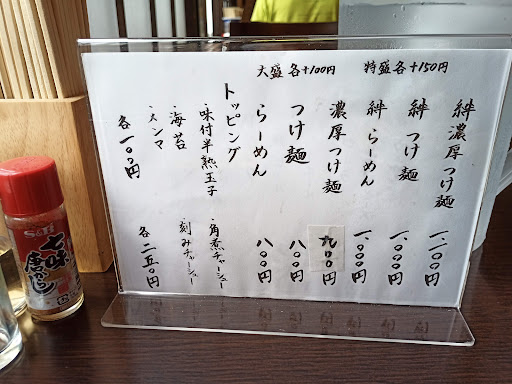 大盛 各+100円 特盛各+150円
絆濃厚つけ麺 一、一〇〇円
絆つけ麺 一、〇〇〇円
絆らーめん 一、〇〇〇円
濃厚つけ麺 九〇〇円
つけ麺 八〇〇円
らーめん 八〇〇円
トッピング
・味付半熟玉子
・海苔
・メンマ
各一〇〇円
・角煮チャーシュー
・刻みチャーシュー
各二五〇円
S&B
七味
唐からし